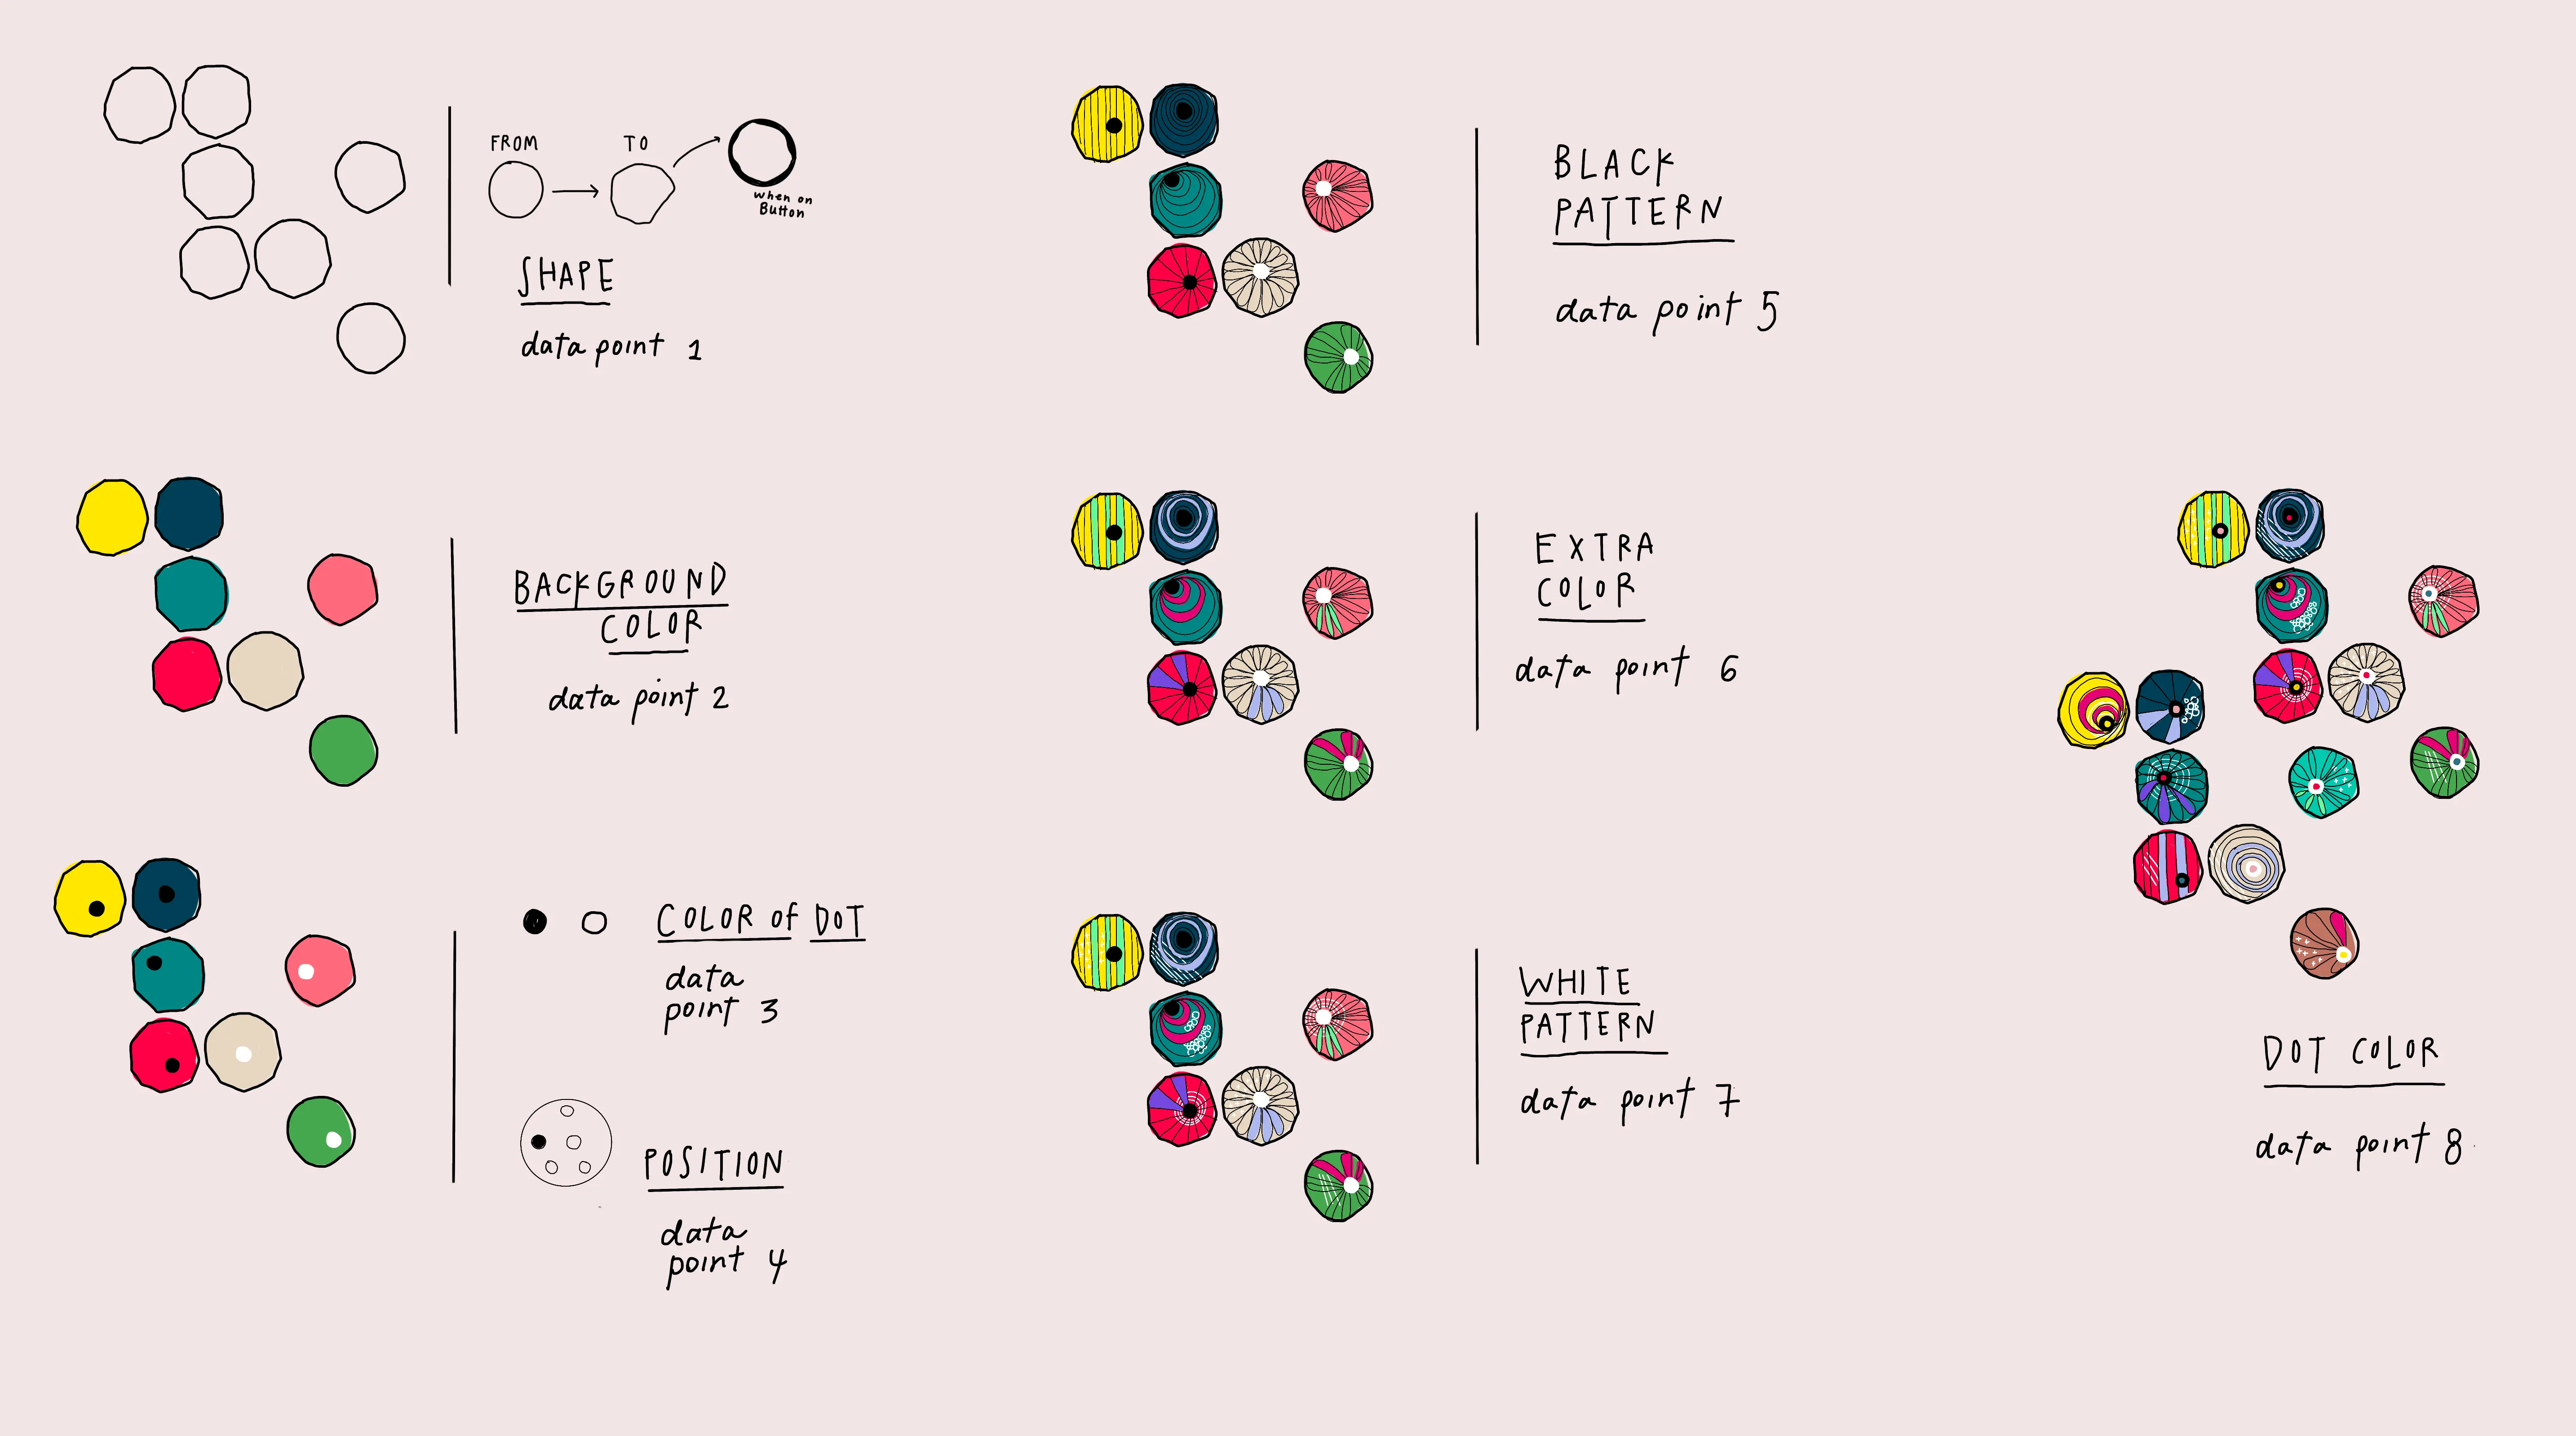 FROM
TO
when on
Button
SHAPE
data point 1
BACKGROUND
COLOR
data point 2
COLOR of DOT
data
point 3
POSITION
data
point 4
BLACK
PATTERN
data point 5
EXTRA
COLOR
data point 6
WHITE
PATTERN
data point 7
DOT COLOR
data point 8